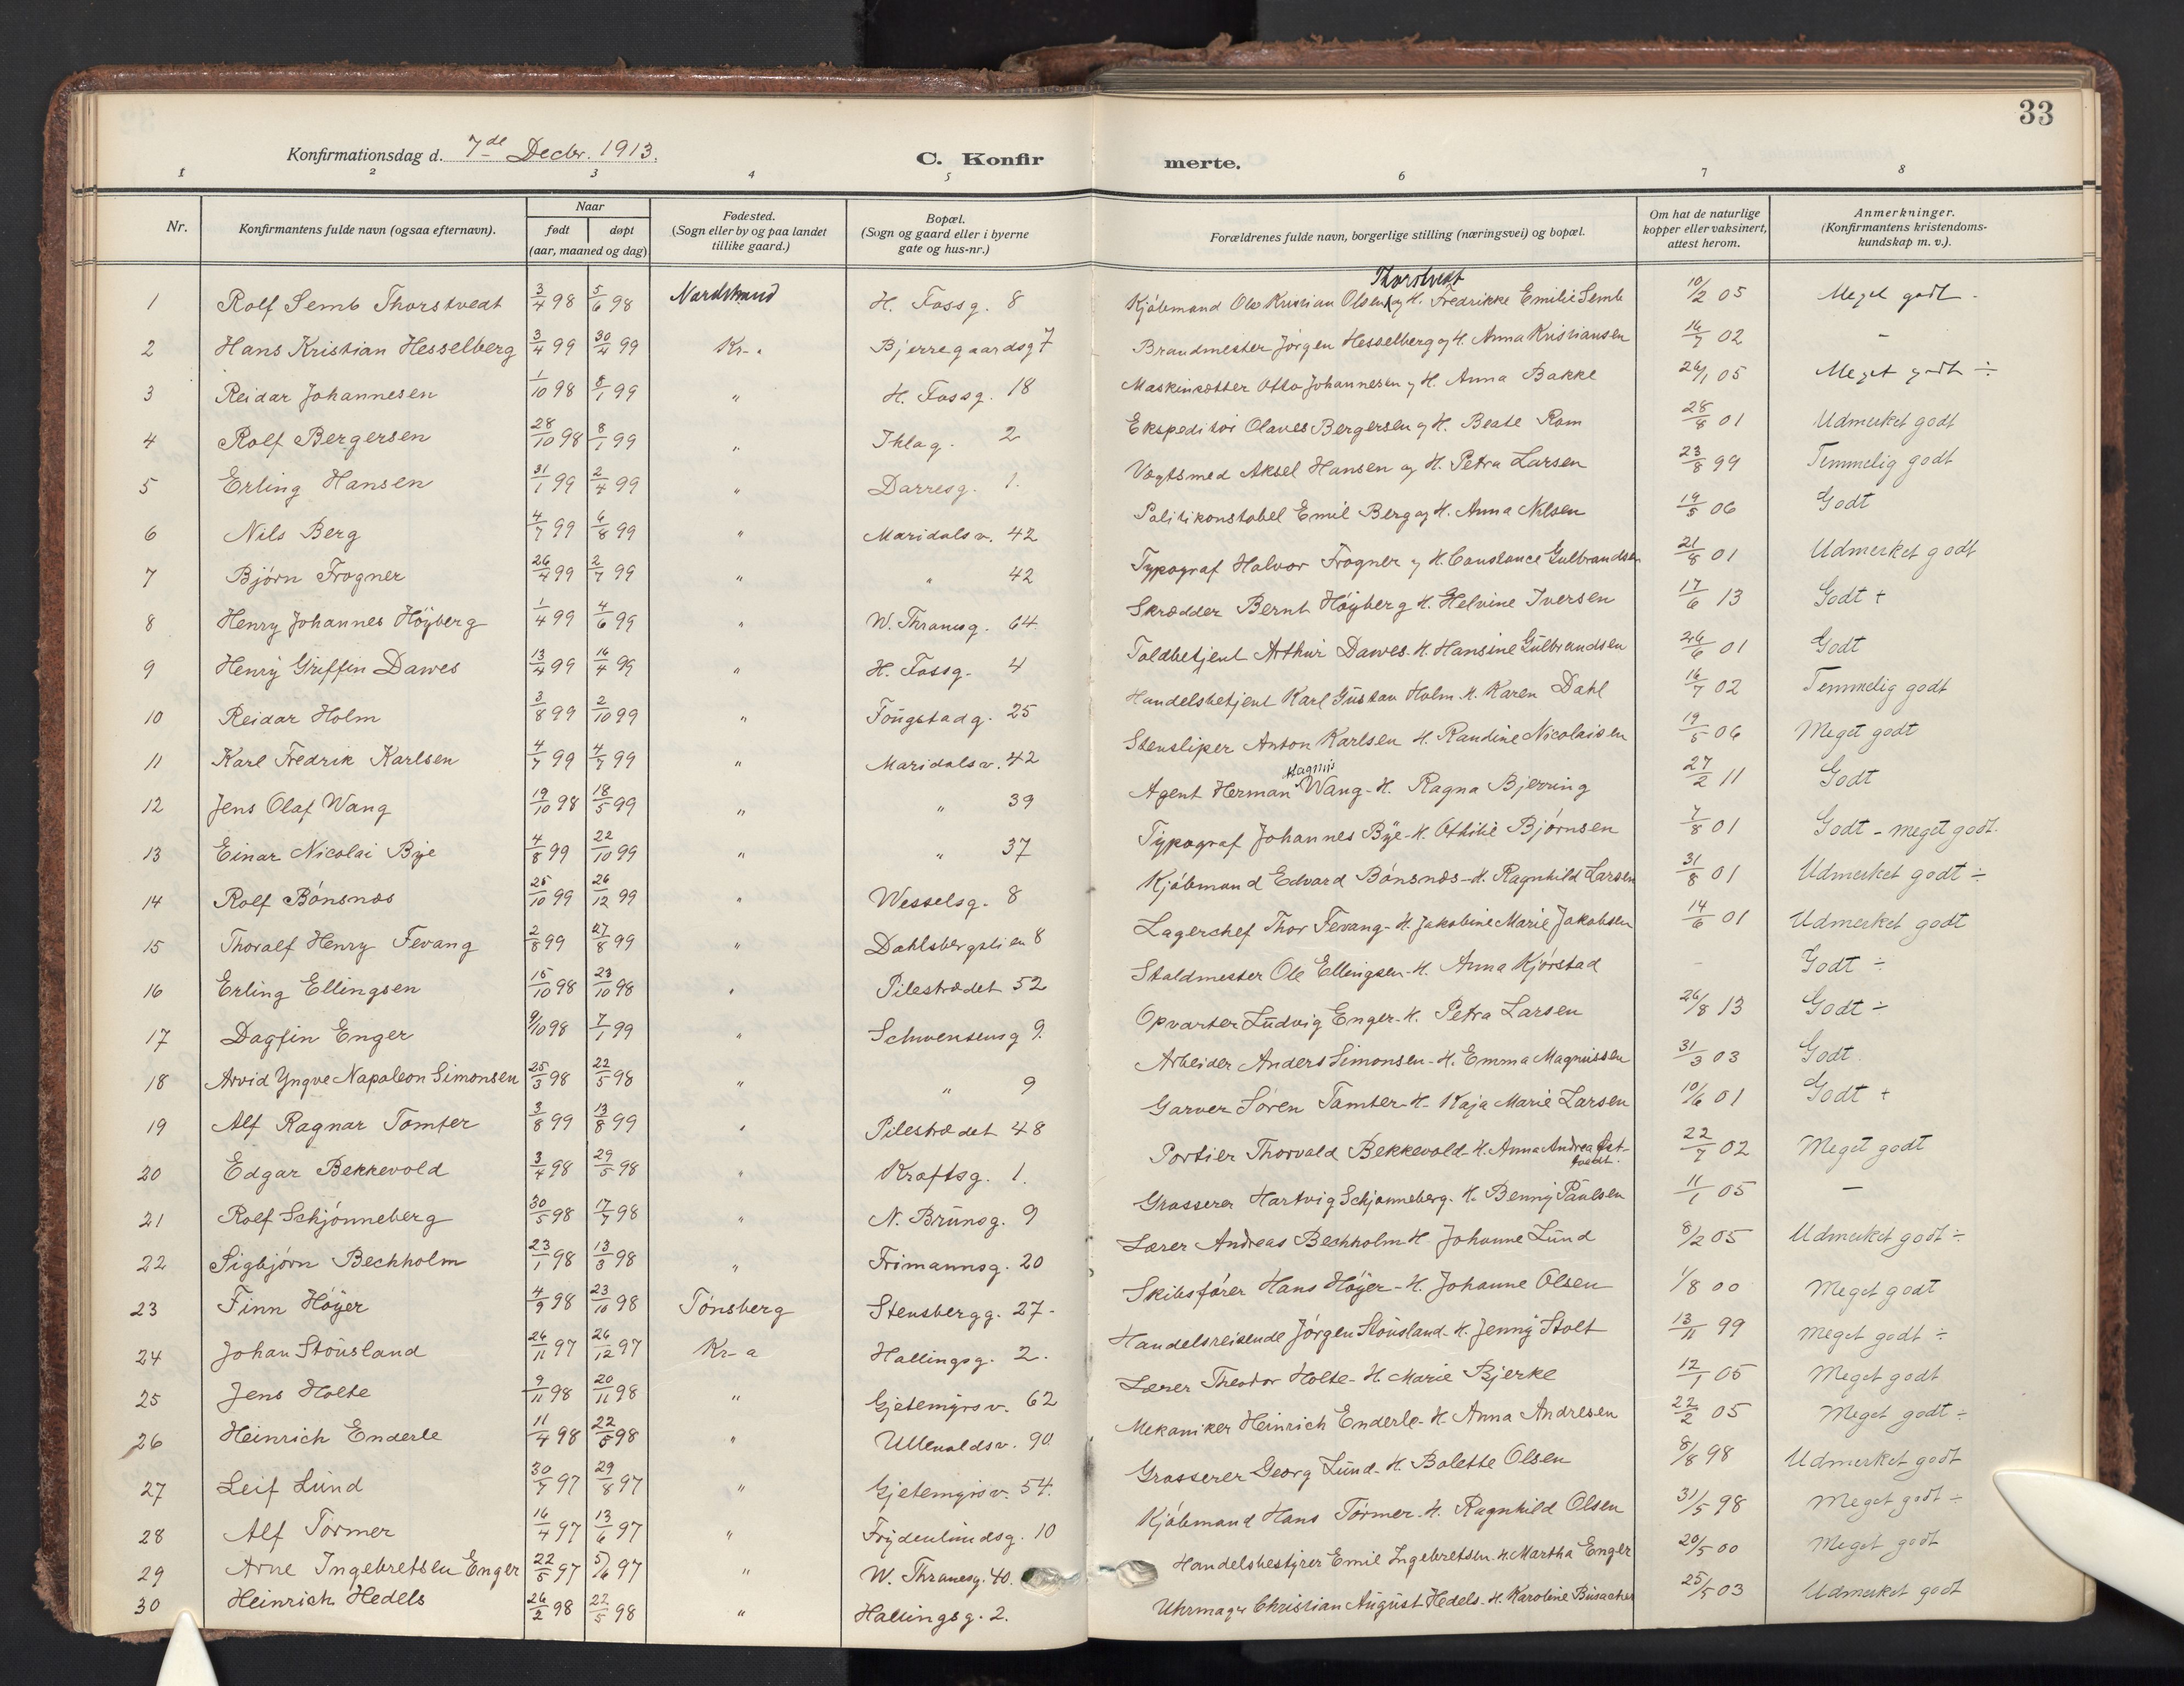 33
Konfirmationsdag d. 7de Decbr. 1913. C. Konfirmerte.
1 2 3 4 5 6 7 8
Nr. Konfirmantens fulde navn (ogsaa efternavn). Naar født døpt (aar, maaned og dag) Fødested. (Sogn eller by og paa landet tillike gaard.) Bopæl. (Sogn og gaard eller i byerne gate og hus-nr.) Forældrenes fulde navn, borgerlige stilling (næringsvei) og bopæl. Om hat de naturlige kopper eller vaksinert, attest herom. Anmerkninger. (Konfirmantens kristendomskundskap m. v.).
1 Rolf Semb Thorstvedt 3/4 98 5/6 98 Nordstrand H. Fossg. 8 Kjøbmand Ole Kristian Olsen Thorstvedt og H. Fredrikke Emilie Semb 10/2 05 Meget godt -
2 Hans Kristian Hesselberg 3/4 99 30/4 99 Kr-a Bjerregaardsg 7 Brandmester Jørgen Hesselberg og H. Anna Kristiansen 16/7 02 -
3 Reidar Johannesen 1/10 98 8/1 99 " H. Fossg. 18 Otto Johannesen og H. Anna Bakke 26/1 05 Meget godt ÷
4 Rolf Bergersen 28/10 98 8/1 99 " Thlag. 2 Ekspeditør Olaves Bergersen og H. Beate Rom 28/8 01 Udmerket godt
5 Erling Hansen 31/1 99 2/4 99 " Darresg. 1. Vogtsmed Aksel Hansen og H. Petra Larsen 23/8 99 Temmelig godt
6 Nils Berg 4/7 99 6/8 99 " Maridalsv. 42 Politikonstabel Emil Berg og H. Anna Nilsen 19/5 06 Godt
7 Bjørn Frogner 26/4 99 2/7 99 " " 42 Typograf Halvor Frogner og H. Constance Gulbrandsen 21/8 01 Udmerket godt
8 Henry Johannes Höyberg 1/4 99 4/6 99 " W. Thranesg. 64 Skrædder Bernt Höyberg H. Helvine Iversen 17/6 13 Godt +
9 Henry Griffin Dawes 13/4 99 16/4 99 " H. Fossg. 4 Toldbetjent Arthur Dawes - H. Hansine Gulbrandsen 26/6 01 Godt
10 Reidar Holm 3/8 99 2/10 99 " Fougstadg. 25 Handelsbetjent Karl Gustav Holm - H. Karen Dahl 16/7 02 Temmelig godt
11 Karl Fredrik Karlsen 4/7 99 4/7 99 " Maridalsv. 42 Stensliper Anton Karlsen H. Randine Nicolaisen 19/5 06 Meget godt
12 Jens Olaf Wang 19/10 98 18/5 99 " " 39 Agent Herman Magnus Wang - H. Ragna Bjerring 27/2 11 Godt
13 Einar Nicolai Bye 4/8 99 22/10 99 " " 37 Typograf Johannes Bye - H. Othilie Bjørnsen 7/8 01 Godt - meget godt.
14 Rolf Bönsnæs 25/10 99 26/12 99 " Wesselsg. 8 Kjøbmand Edvard Bönsnæs - H. Ragnhild Larsen 31/8 01 Udmerket godt ÷
15 Thoralf Henry Fevang 2/8 99 27/8 99 " Dahlsbergstien 8 Lagerchef Thor Fevang - H. Jakobine Marie Jakobsen 14/6 01 Udmerket godt
16 Erling Ellingsen 15/10 98 23/10 98 " Pilestrædet 52 Staldmester Ole Ellingsen - H. Anna Kjörstad - Godt ÷
17 Dagfin Enger 9/10 98 7/1 99 " Schwensensg 9. Opvarter Ludvig Enger - H. Petra Larsen 26/8 13 Godt ÷
18 Arvid Yngve Napoleon Simonsen 25/3 98 22/5 98 " " 9 Arbeider Anders Simonsen - H. Emma Magnussen 31/3 03 Godt
19 Alf Ragnar Tomter 3/8 99 13/8 99 " Pilestrædet 48 Garver Sören Tamter - H. Kaja Marie Larsen 10/6 01 Godt +
20 Edgar Bekkevold 3/4 98 29/5 98 " Kraftsg. 1. Portier Thorvald Bekkevold - H. Anna Andrea 22/7 02 Meget godt
21 Rolf Schjönneberg 30/5 98 17/7 98 " N. Brunsg. 9 Grosserer Hartvig Schjönneberg - H. Benny Paulsen 11/1 05 -
22 Sigbjörn Bechholm 23/1 98 13/3 98 " Frimannsg. 20 Lærer Andreas Bechholm - H. Johanne Lund 8/2 05 Udmerket godt ÷
23 Finn Höyer 4/9 98 23/10 98 Tönsberg Stensbergg. 27 - Skibsfører Hans Höyer - H. Johanne Olsen 1/8 00 Meget godt
24 Johan Stousland 26/11 97 26/12 97 Kr-a Hallingsg. 2. Handelsreisende Jørgen Stousland - H. Jenny Stolt 13/11 99 Meget godt ÷
25 Jens Holte 9/11 98 20/11 98 " Gjetemyrsv. 62 Lærer Theodor Holte - H. Marie Bjerke 12/1 05 Meget godt
26 Heinrich Enderle 11/4 98 22/5 98 " Ullevoldsv. 90 Mekaniker Heinrich Enderle - H. Anna Andresen 22/2 05 Meget godt ÷
27 Leif Lund 30/7 97 29/8 97 " Gjetemyrsv. 54. Grosserer Georg Lund - H. Bolette Olsen 8/8 98 Udmerket godt
28 Alf Tørmer 16/4 97 13/6 97 " Frydenlundsg. 10 Kjøbmand Hans Tørmer - H. Ragnhild Olsen 31/5 98 Meget godt ÷
29 Arne Ingebretsen Enger 22/5 97 5/6 97 " W. Thranesg. 40. Handelsbestyrer Emil Ingebretsen - H. Martha Enger 20/5 00 Meget godt
30 Heinrich Hedels 26/2 98 22/5 98 " Hallingsg. 2. Uhrmager Christian August Hedels - H. Karoline Busacher 25/5 03 Udmerket godt